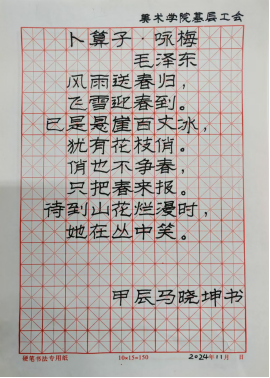 美术学院基层工会
卜算子·咏梅
毛泽东
风雨送春归，
飞雪迎春到。
已是悬崖百丈冰，
犹有花枝俏。
俏也不争春，
只把春来报。
待到山花烂漫时，
她在丛中笑。
甲辰马晓坤书
硬笔书法专用纸 10×15=150 2024年11月 日